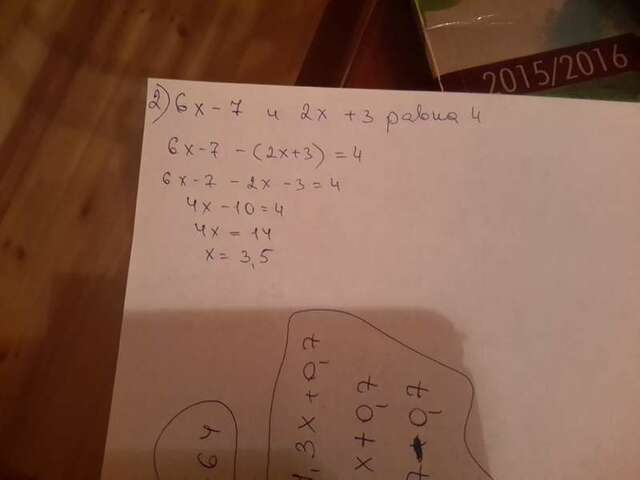 2015/2016
2) 6x-7 и 2x+3 равна 4
6x-7-(2x+3)=4
6x-7-2x-3=4
4x-10=4
4x=14
x=3,5
64
,3x+0,7
x+0,7
0,7